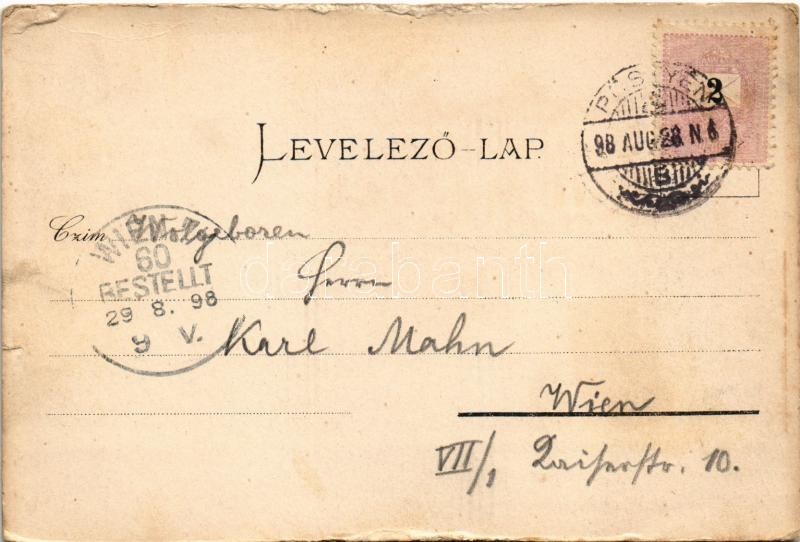 2
PÖSTYÉN
98 AUG. 28. N. 6
B
LEVELEZŐ-LAP.
Czim Wolgeboren
WIEN
60
BESTELLT
29 8. 98
9 V.
Herrn
Karl Mahn
Wien
VII/1 Kaiserstr. 10.
darabanth